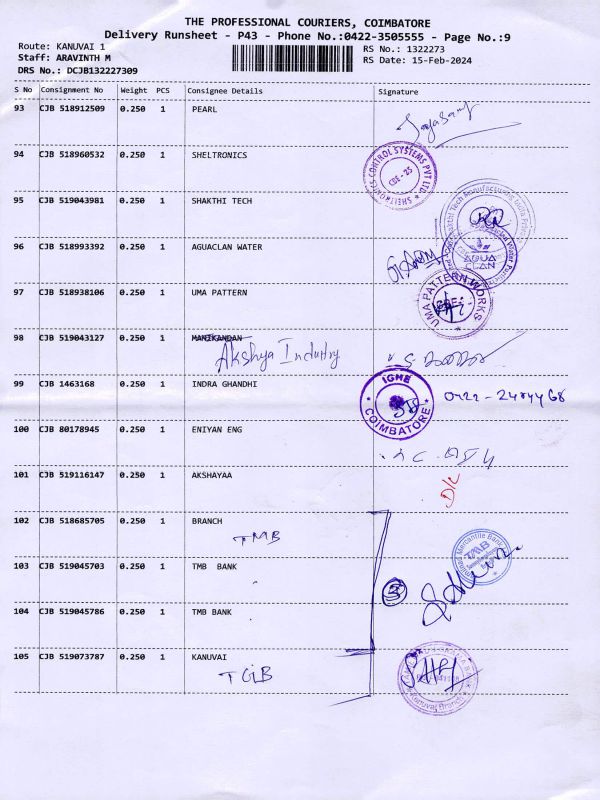 THE PROFESSIONAL COURIERS, COIMBATORE
Delivery Runsheet - P43 - Phone No.:0422-3505555 - Page No.:9
Route: KANUVAI 1
RS No.: 1322273
Staff: ARAVINTH M
RS Date: 15-Feb-2024
DRS No.: DCJB132227309
S No Consignment No Weight PCS Consignee Details Signature
93 CJB 518912509 0.250 1 PEARL
94 CJB 518960532 0.250 1 SHELTRONICS
SHELTRONICS CONTROL SYSTEMS PVT LTD
CBE - 25
95 CJB 519043981 0.250 1 SHAKTHI TECH
96 CJB 518993392 0.250 1 AGUACLAN WATER
AQUA
CLAN
97 CJB 518938106 0.250 1 UMA PATTERN
UMA PATTERN WORKS
98 CJB 519043127 0.250 1 MANIKANDAN
Akshya Industry
99 CJB 1463168 0.250 1 INDRA GHANDHI
IGHE
COIMBATORE
0422 - 2404468
100 CJB 80178945 0.250 1 ENIYAN ENG
101 CJB 519116147 0.250 1 AKSHAYAA
D/L
102 CJB 518685705 0.250 1 BRANCH
TMB
Mercantile Bank
TMB
103 CJB 519045703 0.250 1 TMB BANK
3
104 CJB 519045786 0.250 1 TMB BANK
105 CJB 519073787 0.250 1 KANUVAI
TGB
Kanuvai Branch